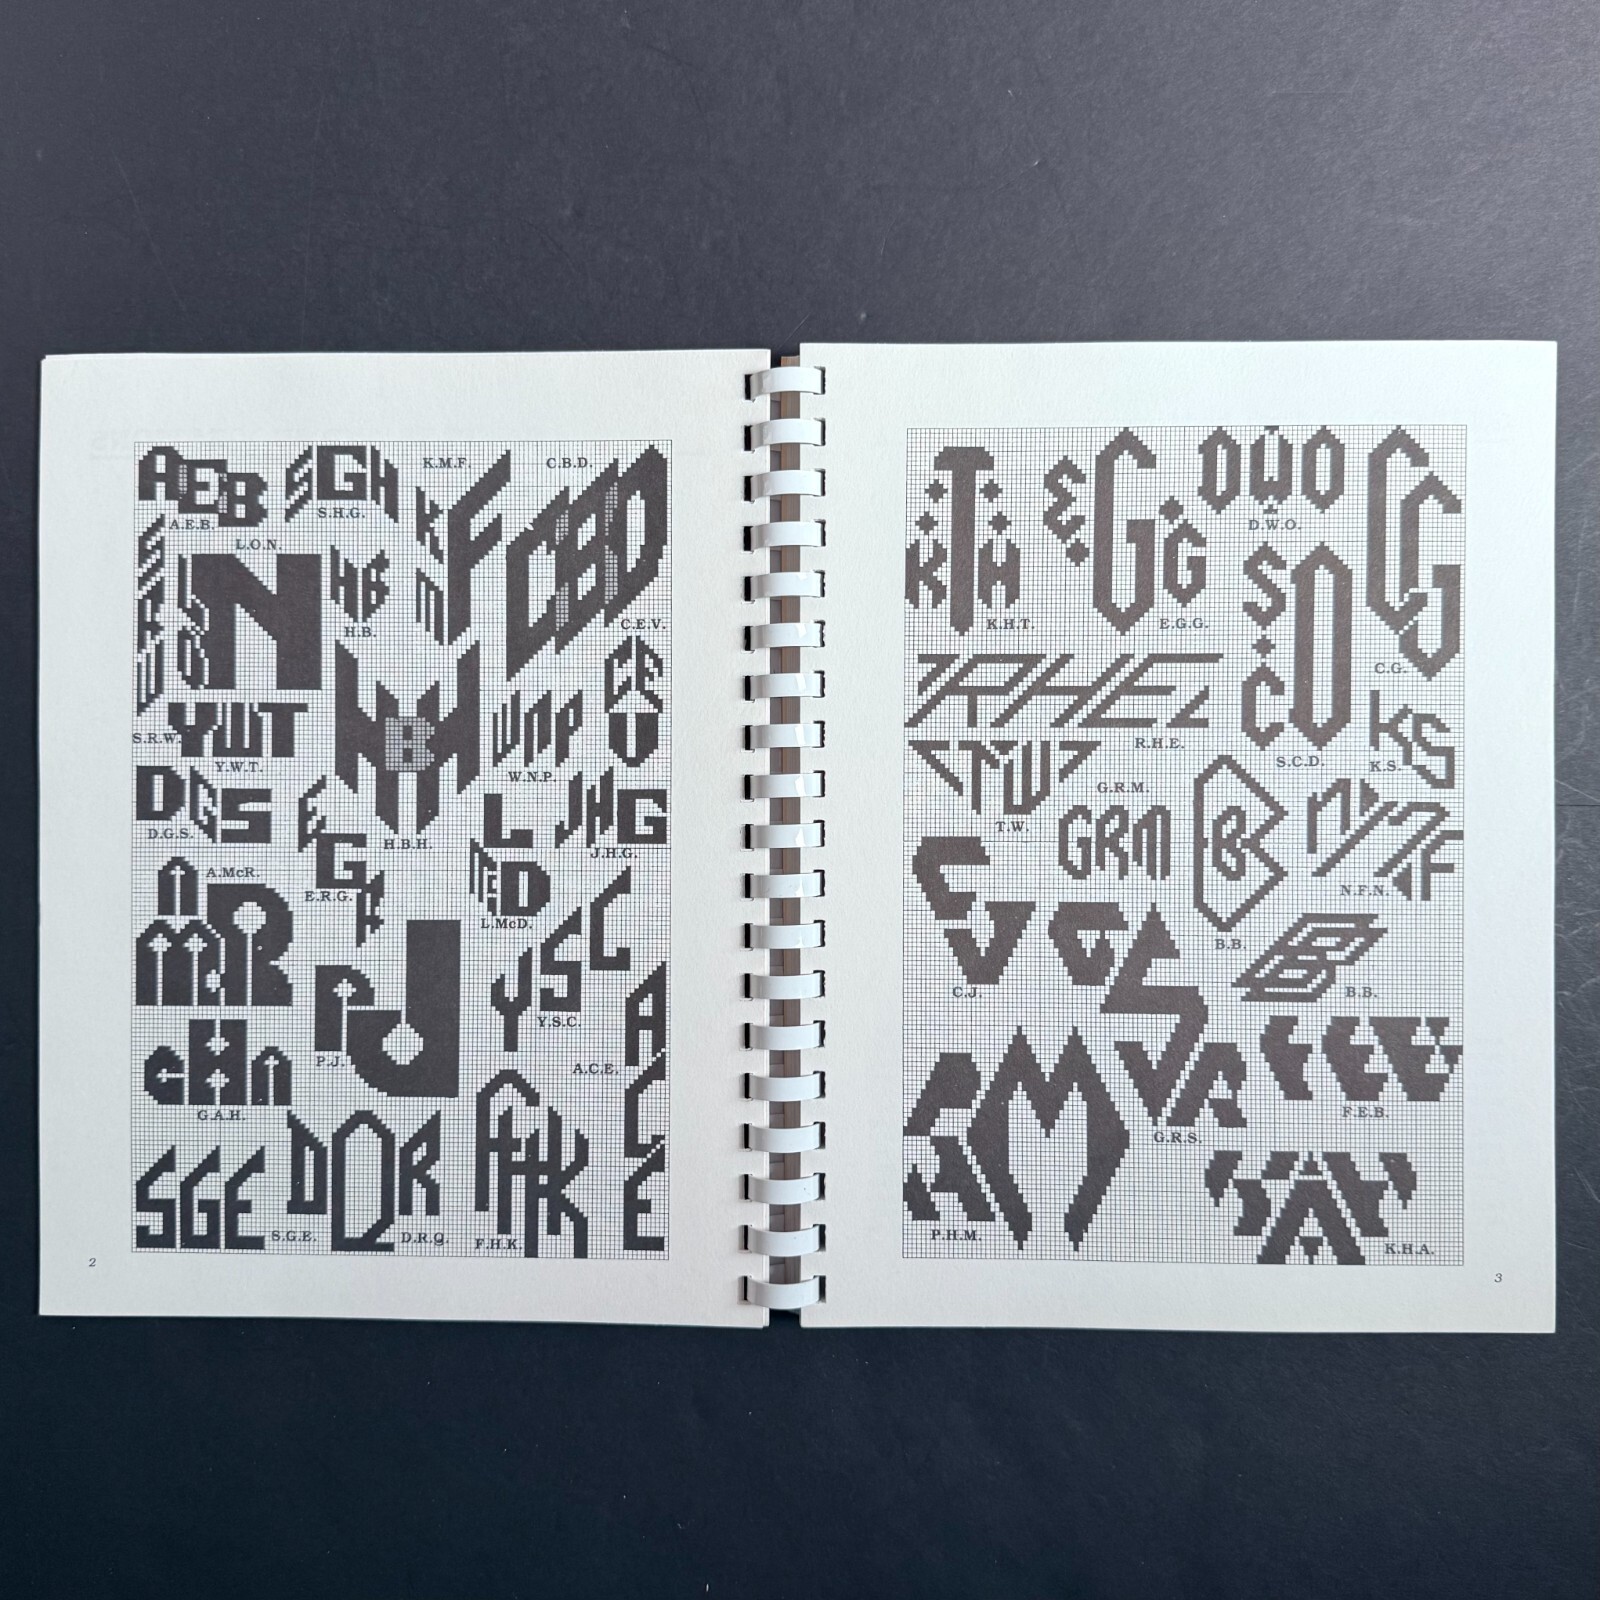 A.E.B.
S.H.G.
K.M.F.
C.B.D.
L.O.N.
H.B.
C.E.V.
S.R.W.
Y.W.T.
W.N.P.
D.G.S.
H.B.H.
J.H.G.
A.McR.
E.R.G.
L.McD.
P.J.
Y.S.C.
A.C.E.
G.A.H.
S.G.E.
D.R.Q.
F.H.K.
2
K.H.T.
E.G.G.
D.W.O.
C.G.
R.H.E.
S.C.D.
K.S.
T.W.
G.R.M.
B.B.
N.F.N.
C.J.
B.B.
G.R.S.
F.E.B.
P.H.M.
K.H.A.
3